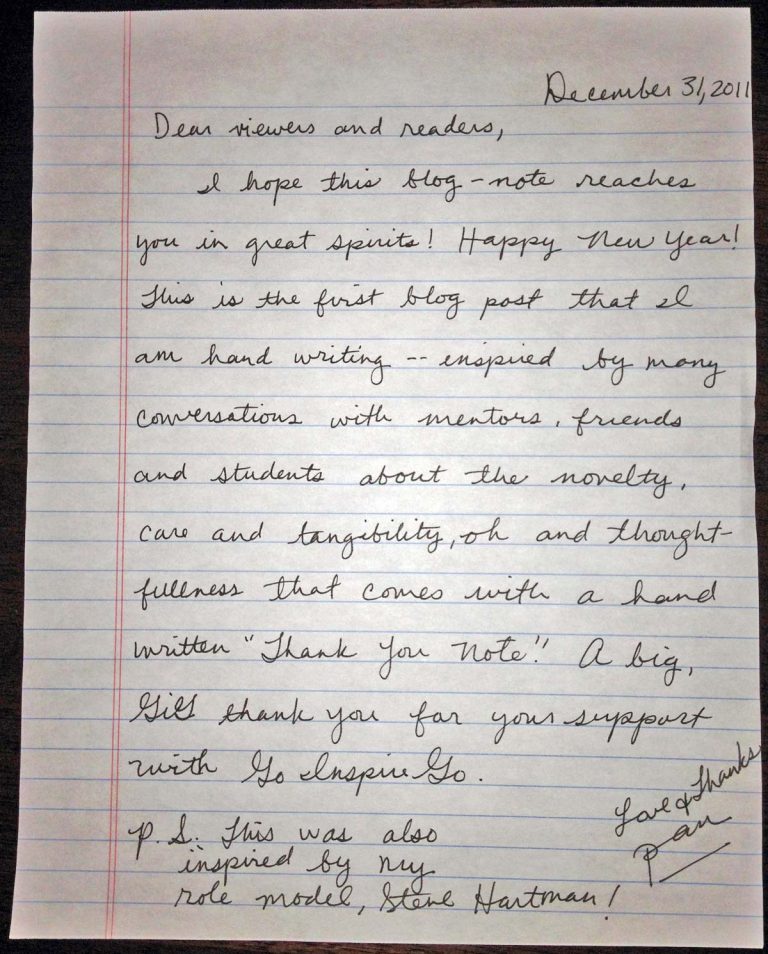 December 31, 2011
Dear viewers and readers,
I hope this blog-note reaches
you in great spirits! Happy New Year!
This is the first blog post that I
am hand writing -- inspired by many
conversations with mentors, friends
and students about the novelty,
care and tangibility, oh and thought-
fullness that comes with a hand
written "Thank You Note". A big,
GiG thank you for your support
with Go Inspire Go.
Love & Thanks
P.S. This was also
inspired by my
role model, Steve Hartman!